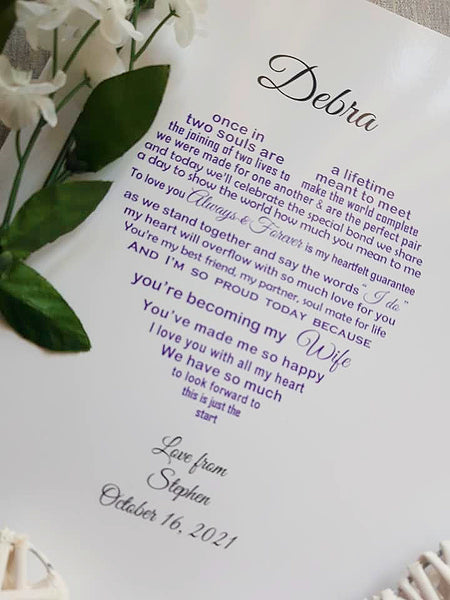 Debra
once in a lifetime
two souls are meant to meet
the joining of two lives to make the world complete
we were made for one another & are the perfect pair
and today we'll celebrate the special bond we share
a day to show the world how much you mean to me
To love you Always & Forever is my heartfelt guarantee
as we stand together and say the words "I do"
my heart will overflow with so much love for you
You're my best friend, my partner, soul mate for life
AND I'M SO PROUD TODAY BECAUSE
you're becoming my Wife
You've made me so happy
I love you with all my heart
We have so much
to look forward to
this is just the
start
Love from
Stephen
October 16, 2021